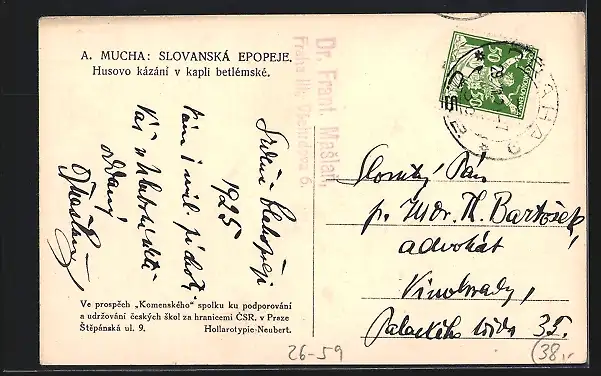 A. MUCHA: SLOVANSKÁ EPOPEJE.
Husovo kázání v kapli betlémské.
Dr. Frant. Mašlaň
Praha III.
6.
Srdečně blahopřeji
1925
Vám i mil. p. choti.
Váš v hluboké úctě
oddaný
Ve prospěch „Komenského“ spolku ku podporování
a udržování českých škol za hranicemi ČSR. v Praze
Štěpánská ul. 9. Hollarotypie-Neubert.
PRAHA
50 50
Slovutný Pán
p. JUDr. K. Bartošek,
advokát
Vinohrady,
Palackého třída 35.
26-59
(38,-